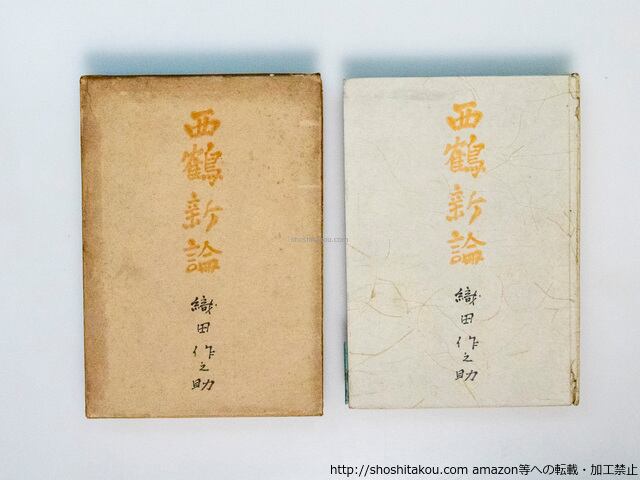 西鶴新論
織田作之助
西鶴新論
織田作之助
shoshitakou.com
http://shoshitakou.com amazon等への転載・加工禁止